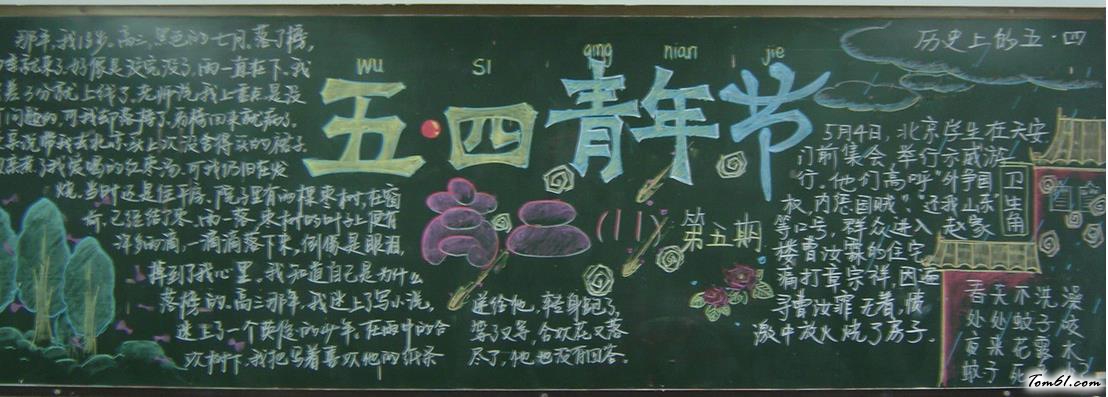 wu SI qing nian jie
五·四青年节
高二(11) 第五期
那年,我18岁。高三,黑色的七月,落了榜,
好像是哭完没了,雨一直在下。我
差3分就上线了,老师说我上重点是没
问题的,可我却落榜了。
可我仍旧在发
烧。当时还是住平房。院子里有两棵枣树,在窗
前。已经结了果,雨一落,枣树的叶子上便有
许多雨滴,一滴滴落下来,倒像是眼泪,
掉到了我心里。我知道自己是为什么
落榜的。高三那年,我迷上了写小说,
迷上了一个英俊的少年。在雨中的合
欢树下,我把写着喜欢他的纸条
递给他,转身跑了,
等了又等,合欢花又落
尽了,他也没有回答。
历史上的五·四
5月4日,北京学生在天安
门前集会,举行示威游
行。他们高呼"外争国
权,内惩国贼""还我山东"
等口号,群众进入赵家
楼曹汝霖的住宅,
痛打章宗祥,因遍
寻曹汝霖无着,愤
激中放火烧了房子。
卫生角
吾天不洗澡
处处蚊子咬
夜来花露水
蚊子死多少
Tom61.com